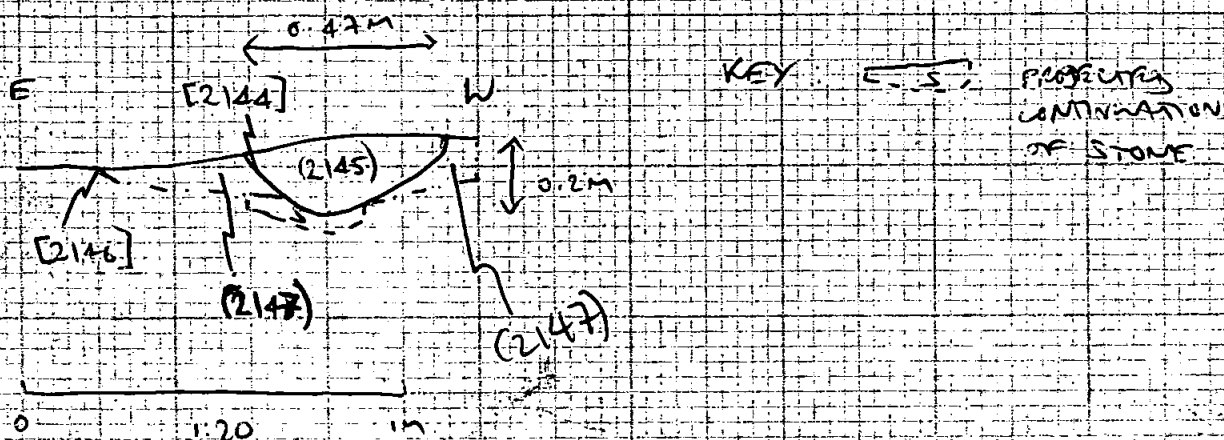 0.47M
E
[2144]
W
KEY
S
PROJECTED
CONTINUATION
OF STONE
(2145)
0.2M
S
[2146]
(2147)
(2147)
0
1:20
1M